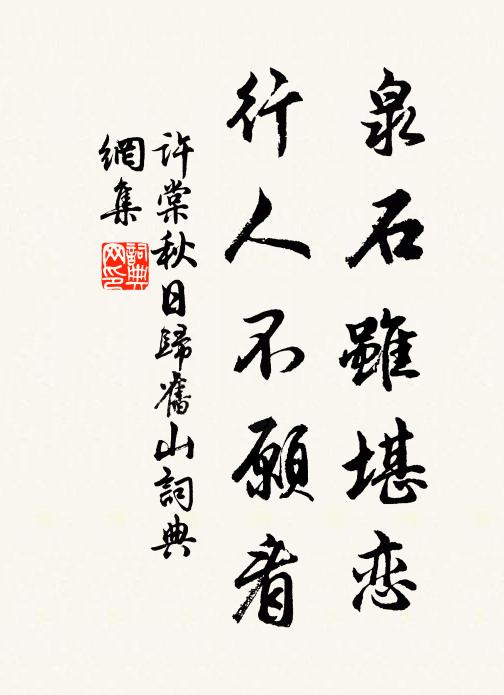 泉石雖堪恋
行人不願看
許棠秋日歸舊山詞典
網集
詞典
网印